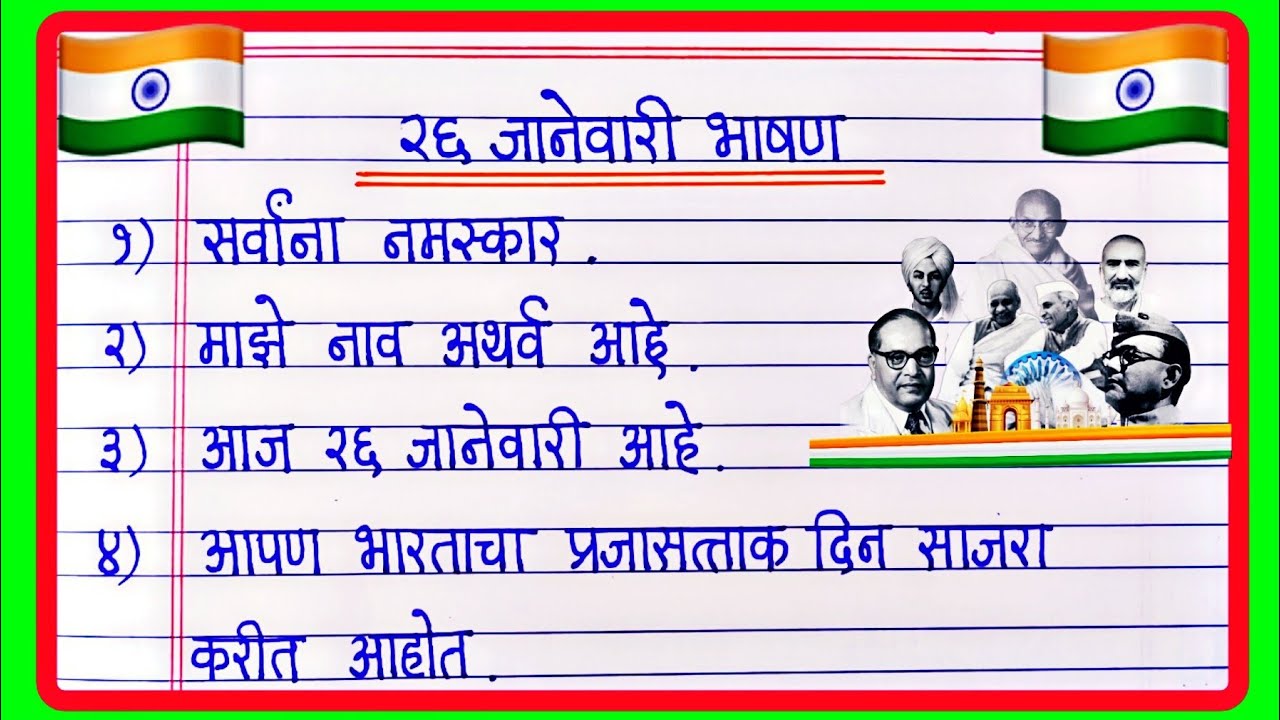 २६ जानेवारी भाषण
१) सर्वांना नमस्कार.
२) माझे नाव अथर्व आहे.
३) आज २६ जानेवारी आहे.
४) आपण भारताचा प्रजासत्ताक दिन साजरा
करीत आहोत.